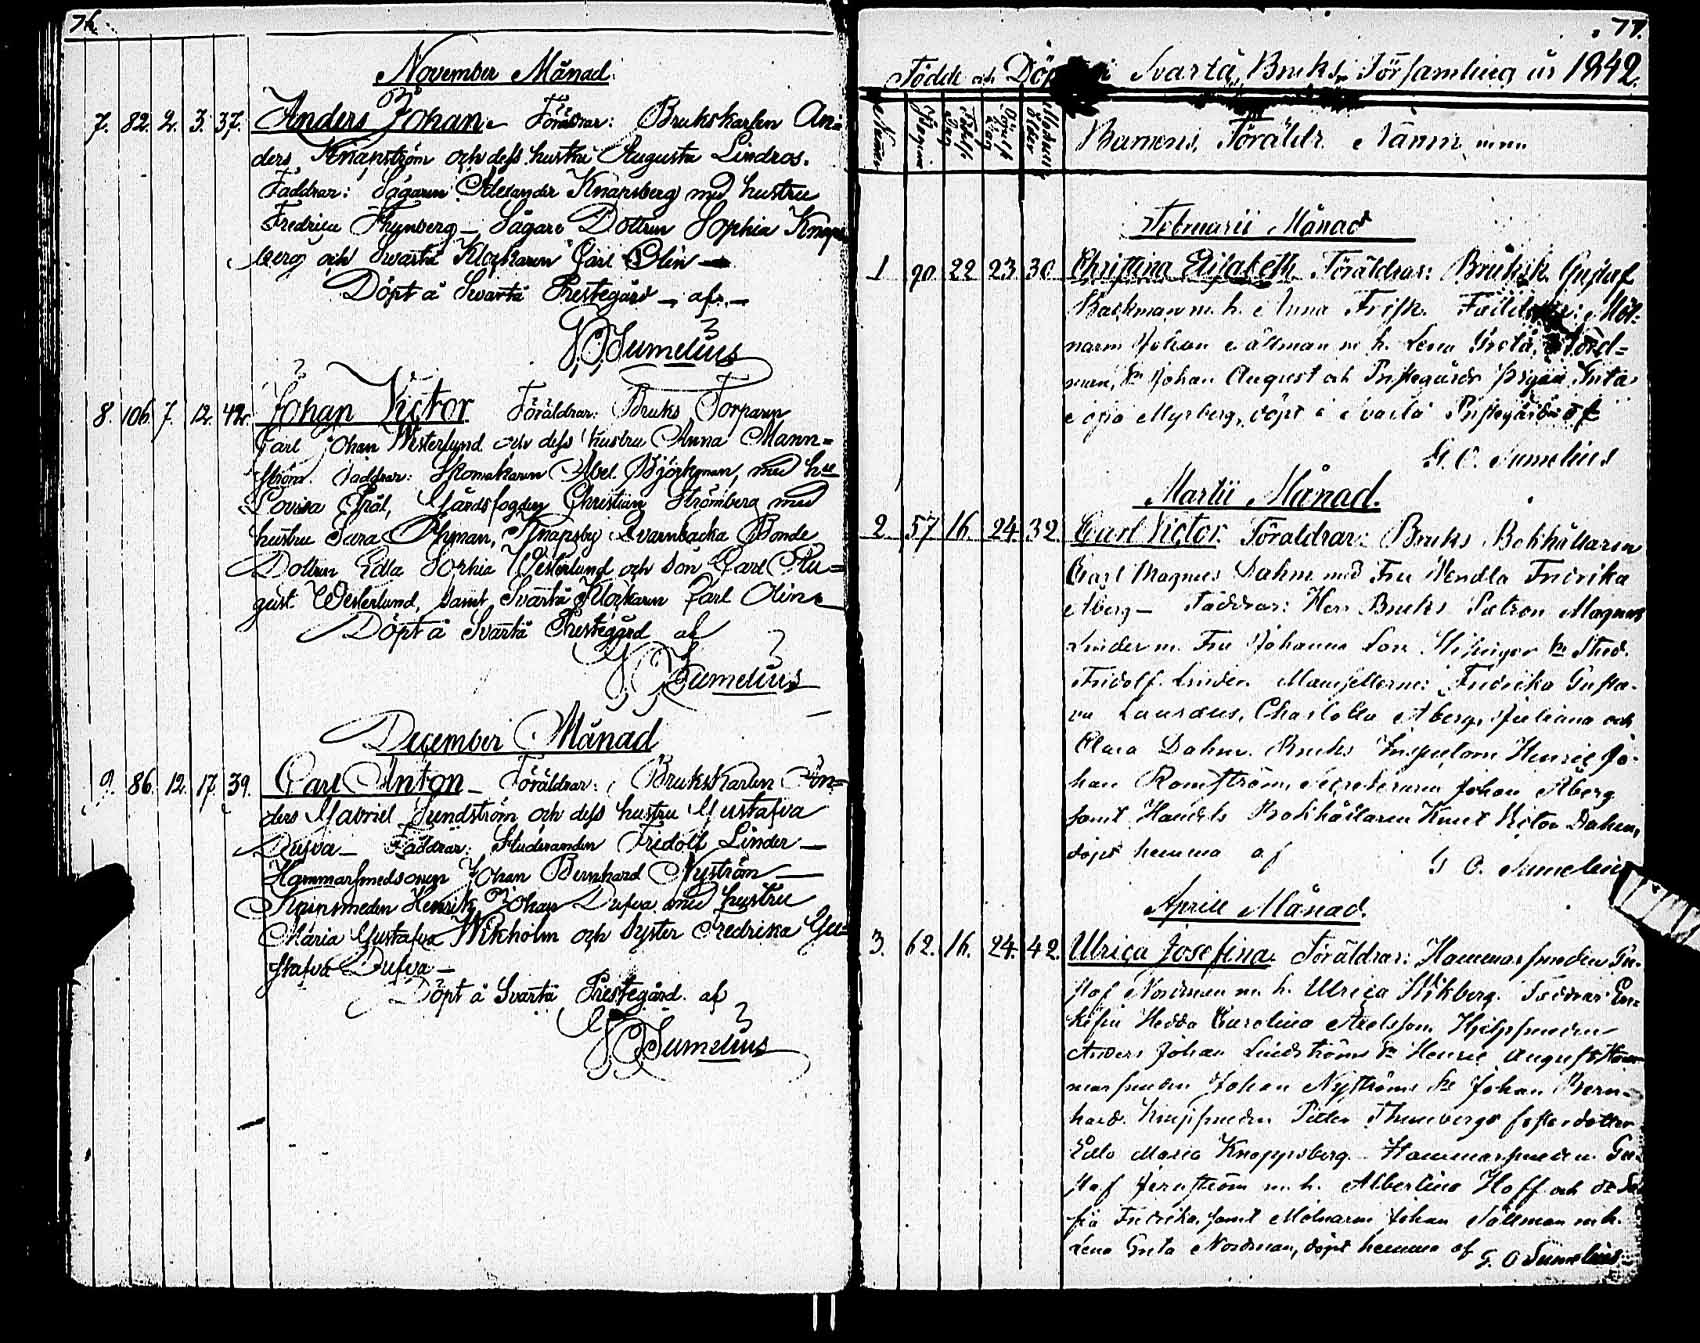 76.
November Månad.
7. 82. 2. 3. 37. Anders Johan. Föräldrar: Brukskarlen An=
ders Knapström och dess hustru Augusta Lindros.
Faddrar: Sågaren Alexander Knapsberg med hustru
Fredrica Thunberg – Sågare Dottren Sophia Knaps
berg och Svartå Klockaren Carl Olin –
Döpt å Svartå Prestegård – af. –
G O Sumelius
8. 106. 7. 12. 42. Johan Victor Föräldrar: Bruks Torparn
Carl Johan Westerlund och dess hustru Anna Mann=
ström. Faddrar: Skomakaren Abel Björkman, med hu
Lovisa Gårdsfogden Christian Strömberg med
hustru Sara Öhman, Knapsby Qvarnbacka Bonde
Dottren Edla Sophia Westerlund och Son Carl Au=
gust Westerlund, samt Svartå Klockaren Carl Olin
Döpt å Svartå Prestegård af
G O Sumelius
December Månad
9. 86. 12. 17. 39. Carl Anton – Föräldrar: Brukskarlen An=
ders Gabriel Sundström och dess hustru Gustafva
Dufva – Faddrar: Studeranden Fridolf Linder –
Hammarsmedsonen Johan Bernhard Nyström –
Kniipsmeden Henrik Johan Dufva med hustru
Maria Gustafva Wikholm och Syster Fredrika Gu=
stafva Dufva –
Döpt å Svartå Prestegård af
G O Sumelius
77.
Födde och Döpte i Svartå Bruks Församling år 1842.
Numer Döpelse Dag Modrens Ålder Barnens, Föräldr. Namn m.m.
Februarii Månad
1 90 22 23 30 Christina Elisabeth. Föräldrar: Bruksk. Gustaf
Backman m. h. Anna Frisk. Faddrar: Möl=
naren Johan Sållman m h. Lena Greta Nord=
man, Sn Johan August och Prestegårds pigan Greta
Myrberg, döpt i Svartå Prestegård af
G. O. Sumelius
Martii Månad.
2. 57 16. 24. 32 Carl Victor. Föräldrar: Bruks Bokhållaren
Carl Magnus Dahm med Fru Wendla Fredrika
Åberg – Faddrar: Herr Bruks Patron Magnus
Linder m. Fru Johanna Hisinger Sn Stud.
Fridolf Linder. Mamsellerne: Fredrika Gusta-
va Lauræus, Charlotta Åberg, Juliana och
Clara Dahm. Bruks Inspectorn Henric Jo-
han Romström, Secreteraren Johan Åberg
samt Handels Bokhållaren Knut Victor Dahm,
döpt hemma af
G O. Sumelius
Aprill Månad.
3. 62. 16. 24. 42. Ulrica Josefina. Föräldrar: Hammarsmeden Gu-
staf Nordman m. h. Ulrica Wikberg. Faddrar En-
kefru Hedda Carolina Axelsson. Hjelpsmeden
Anders Johan Lindströms Sn Henric August Ham
marsmeden Johan Nyströms Sn Johan Bern-
hard. Knipsmeden Petter Thunbergs fosterdotter
Edla Maria Knappsberg. Hammarsmeden Gu-
staf Jernström m. h. Albertina Hoff och dr So
fia Fredrika, samt Mölnaren Johan Sållman m. h.
Lena Greta Nordman, döpt hemma af G. O Sumelius